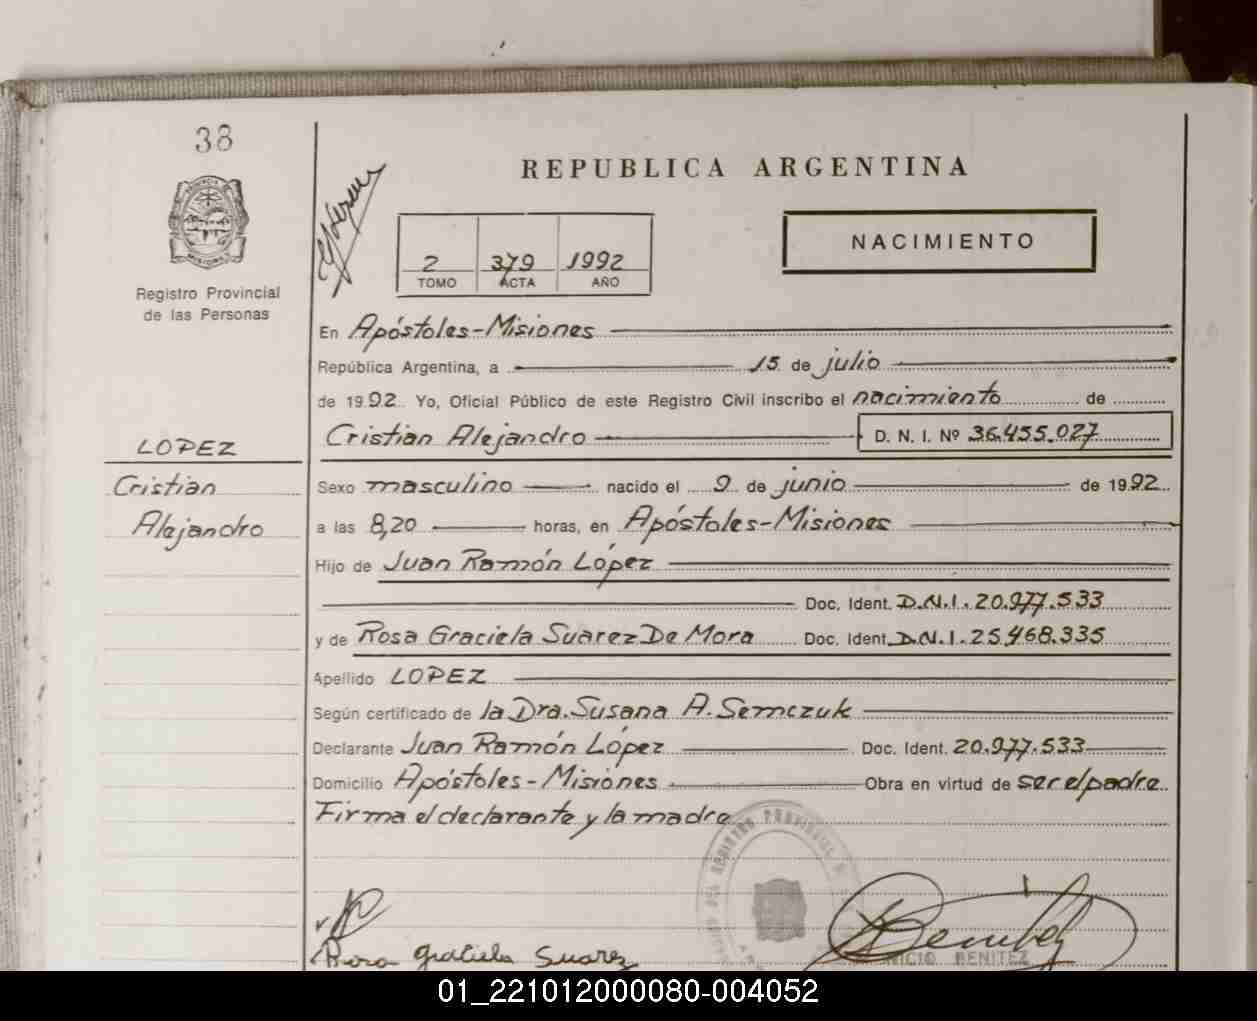 38
REPUBLICA ARGENTINA
NACIMIENTO
2 379 1992
TOMO ACTA AÑO
MISIONES
Registro Provincial
de las Personas
En Apóstoles-Misiones
República Argentina, a 15 de julio
de 1992. Yo, Oficial Público de este Registro Civil inscribo el nacimiento de
Cristian Alejandro D. N. I. Nº 36.455.027
LOPEZ
Cristian
Alejandro
Sexo masculino nacido el 9 de junio de 1992
a las 8,20 horas, en Apóstoles-Misiones
Hijo de Juan Ramón López
Doc. Ident. D.N.I. 20.977.533
y de Rosa Graciela Suarez De Mora Doc. Ident. D.N.I. 25.468.335
Apellido LOPEZ
Según certificado de la Dra. Susana A. Semczuk
Declarante Juan Ramón López Doc. Ident. 20.977.533
Domicilio Apóstoles-Misiones Obra en virtud de ser el padre.
Firma el declarante y la madre
Rosa Graciela Suarez
BENITEZ
01_221012000080-004052